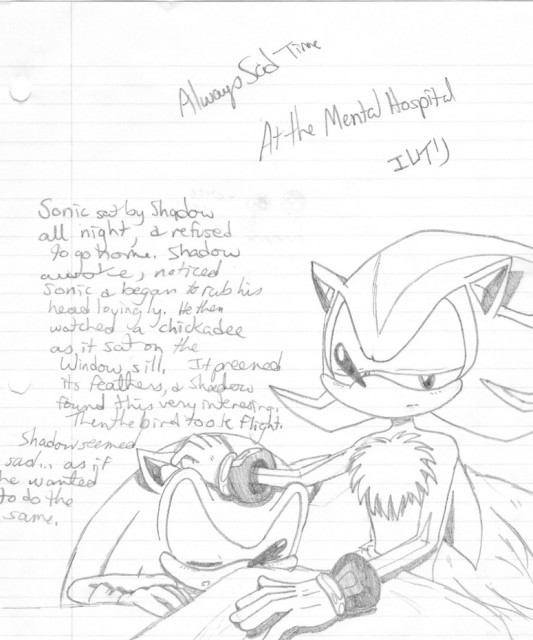 Always Sad Time
At the Mental Hospital
Sonic sat by Shadow
all night, & refused
to go home. Shadow
awoke, noticed
Sonic & began to rub his
head lovingly. He then
watched a chickadee
as it sat on the
window sill. It preened
its feathers, & Shadow
found this very interesting.
Then the bird took flight.
Shadow seemed
sad... as if
he wanted
to do the
same.